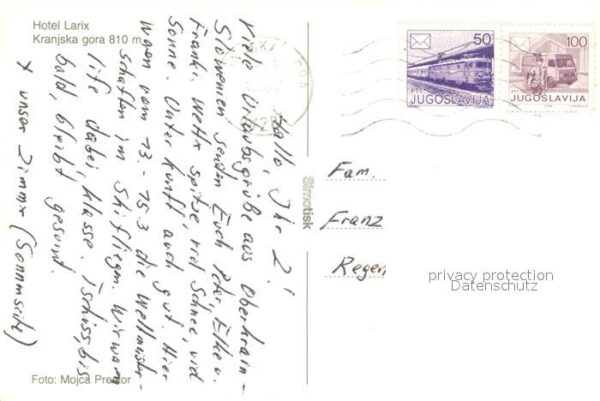 Hotel Larix
Kranjska gora 810 m
Hallo, Ihr 2!
Viele Urlaubsgrüße aus Oberkrain-
Slowenien senden Euch Peter, Elke u.
Frank. Wetter spitze, viel Schnee, viel
Sonne. Unterkunft auch gut. Hier
waren vom 13. - 15.3 die Weltmeister-
schaften im Skifliegen. Wir waren
life dabei, klasse. Tschüss, bis
bald, bleibt gesund.
x unser Zimmer (Sonnenseite)
Foto: Mojca Pre
Simotisk
PTT
50
JUGOSLAVIJA
PTT
100
JUGOSLAVIJA
Fam.
Franz
Regen
privacy protection
Datenschutz